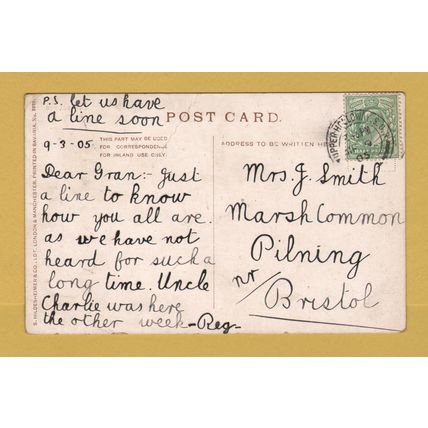 P.S. let us have
a line soon
POST CARD.
9-3-05
THIS PART MAY BE USED
FOR CORRESPONDENCE
FOR INLAND USE ONLY.
Dear Gran:- Just
a line to know
how you all are.
as we have not
heard for such a
long time. Uncle
Charlie was here
the other week -Reg-
ADDRESS TO BE WRITTEN
Mrs. J. Smith
Marsh Common
Pilning
nr
Bristol
S. HILDESHEIMER & CO., LDT. LONDON & MANCHESTER. PRINTED IN BAVARIA.
UPPER HOLLOWAY